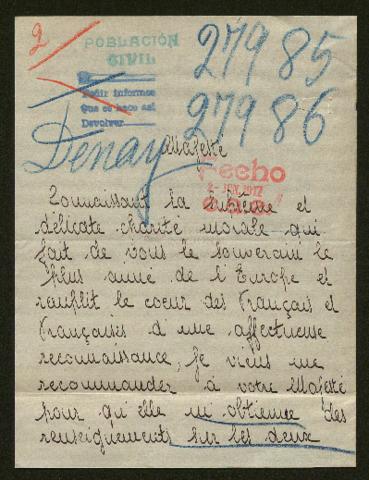 2
POBLACIÓN
CIVIL
Pedir informes
Que se hace así
Devolver
279 85
279 86
Denay
Majesté
Fecho
2- JUN. 1917
Connaissant la sublime et
délicate charité morale qui
fait de vous le souverain le
plus aimé de l'Europe et
remplit le coeur des Français et
Françaises d'une affectueuse
reconnaissance, je viens me
recommander à votre Majesté
pour qu'elle m'obtienne des
renseignements sur les deux